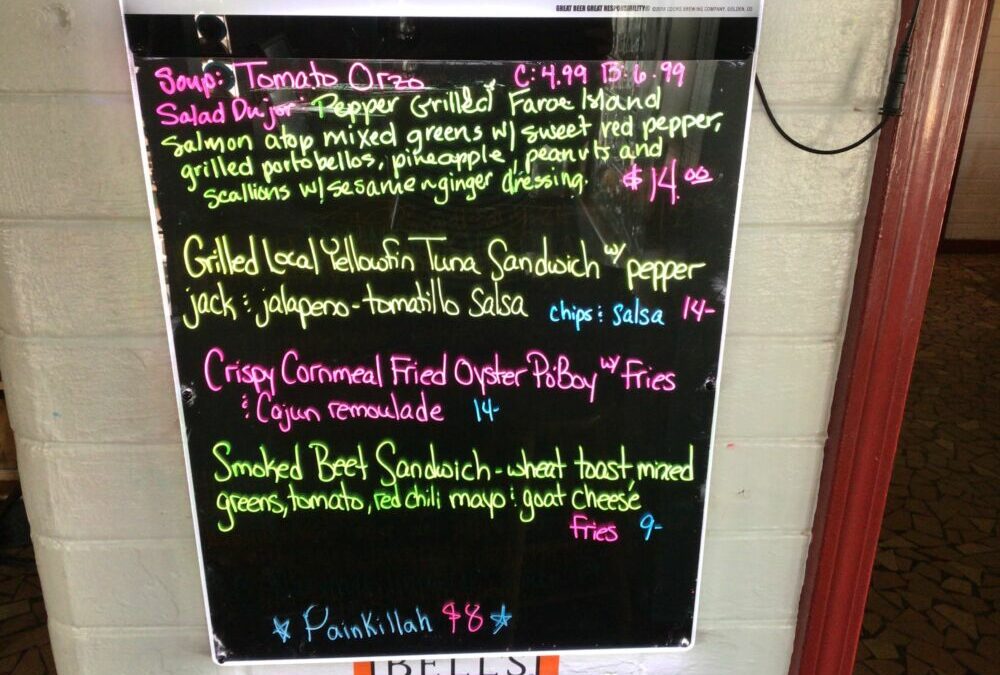 GREAT BEER GREAT RESPONSIBILITY® ©2014 COORS BREWING COMPANY, GOLDEN, CO
Soup: Tomato Orzo C: 4.99 B: 6.99
Salad Du jor Pepper Grilled Faroe Island
Salmon atop mixed greens w/ sweet red pepper,
grilled portobellos, pineapple, peanuts and
scallions w/ sesame ginger dressing. $14.00
Grilled Local Yellowfin Tuna Sandwich w/ pepper
jack & jalapeno-tomatillo Salsa chips & Salsa 14-
Crispy Cornmeal Fried Oyster Po'Boy w/ Fries
& Cajun remoulade 14-
Smoked Beet Sandwich - wheat toast, mixed
greens, tomato, red chili mayo & goat cheese
Fries 9-
☆ Painkillah $8 ☆
BELLS